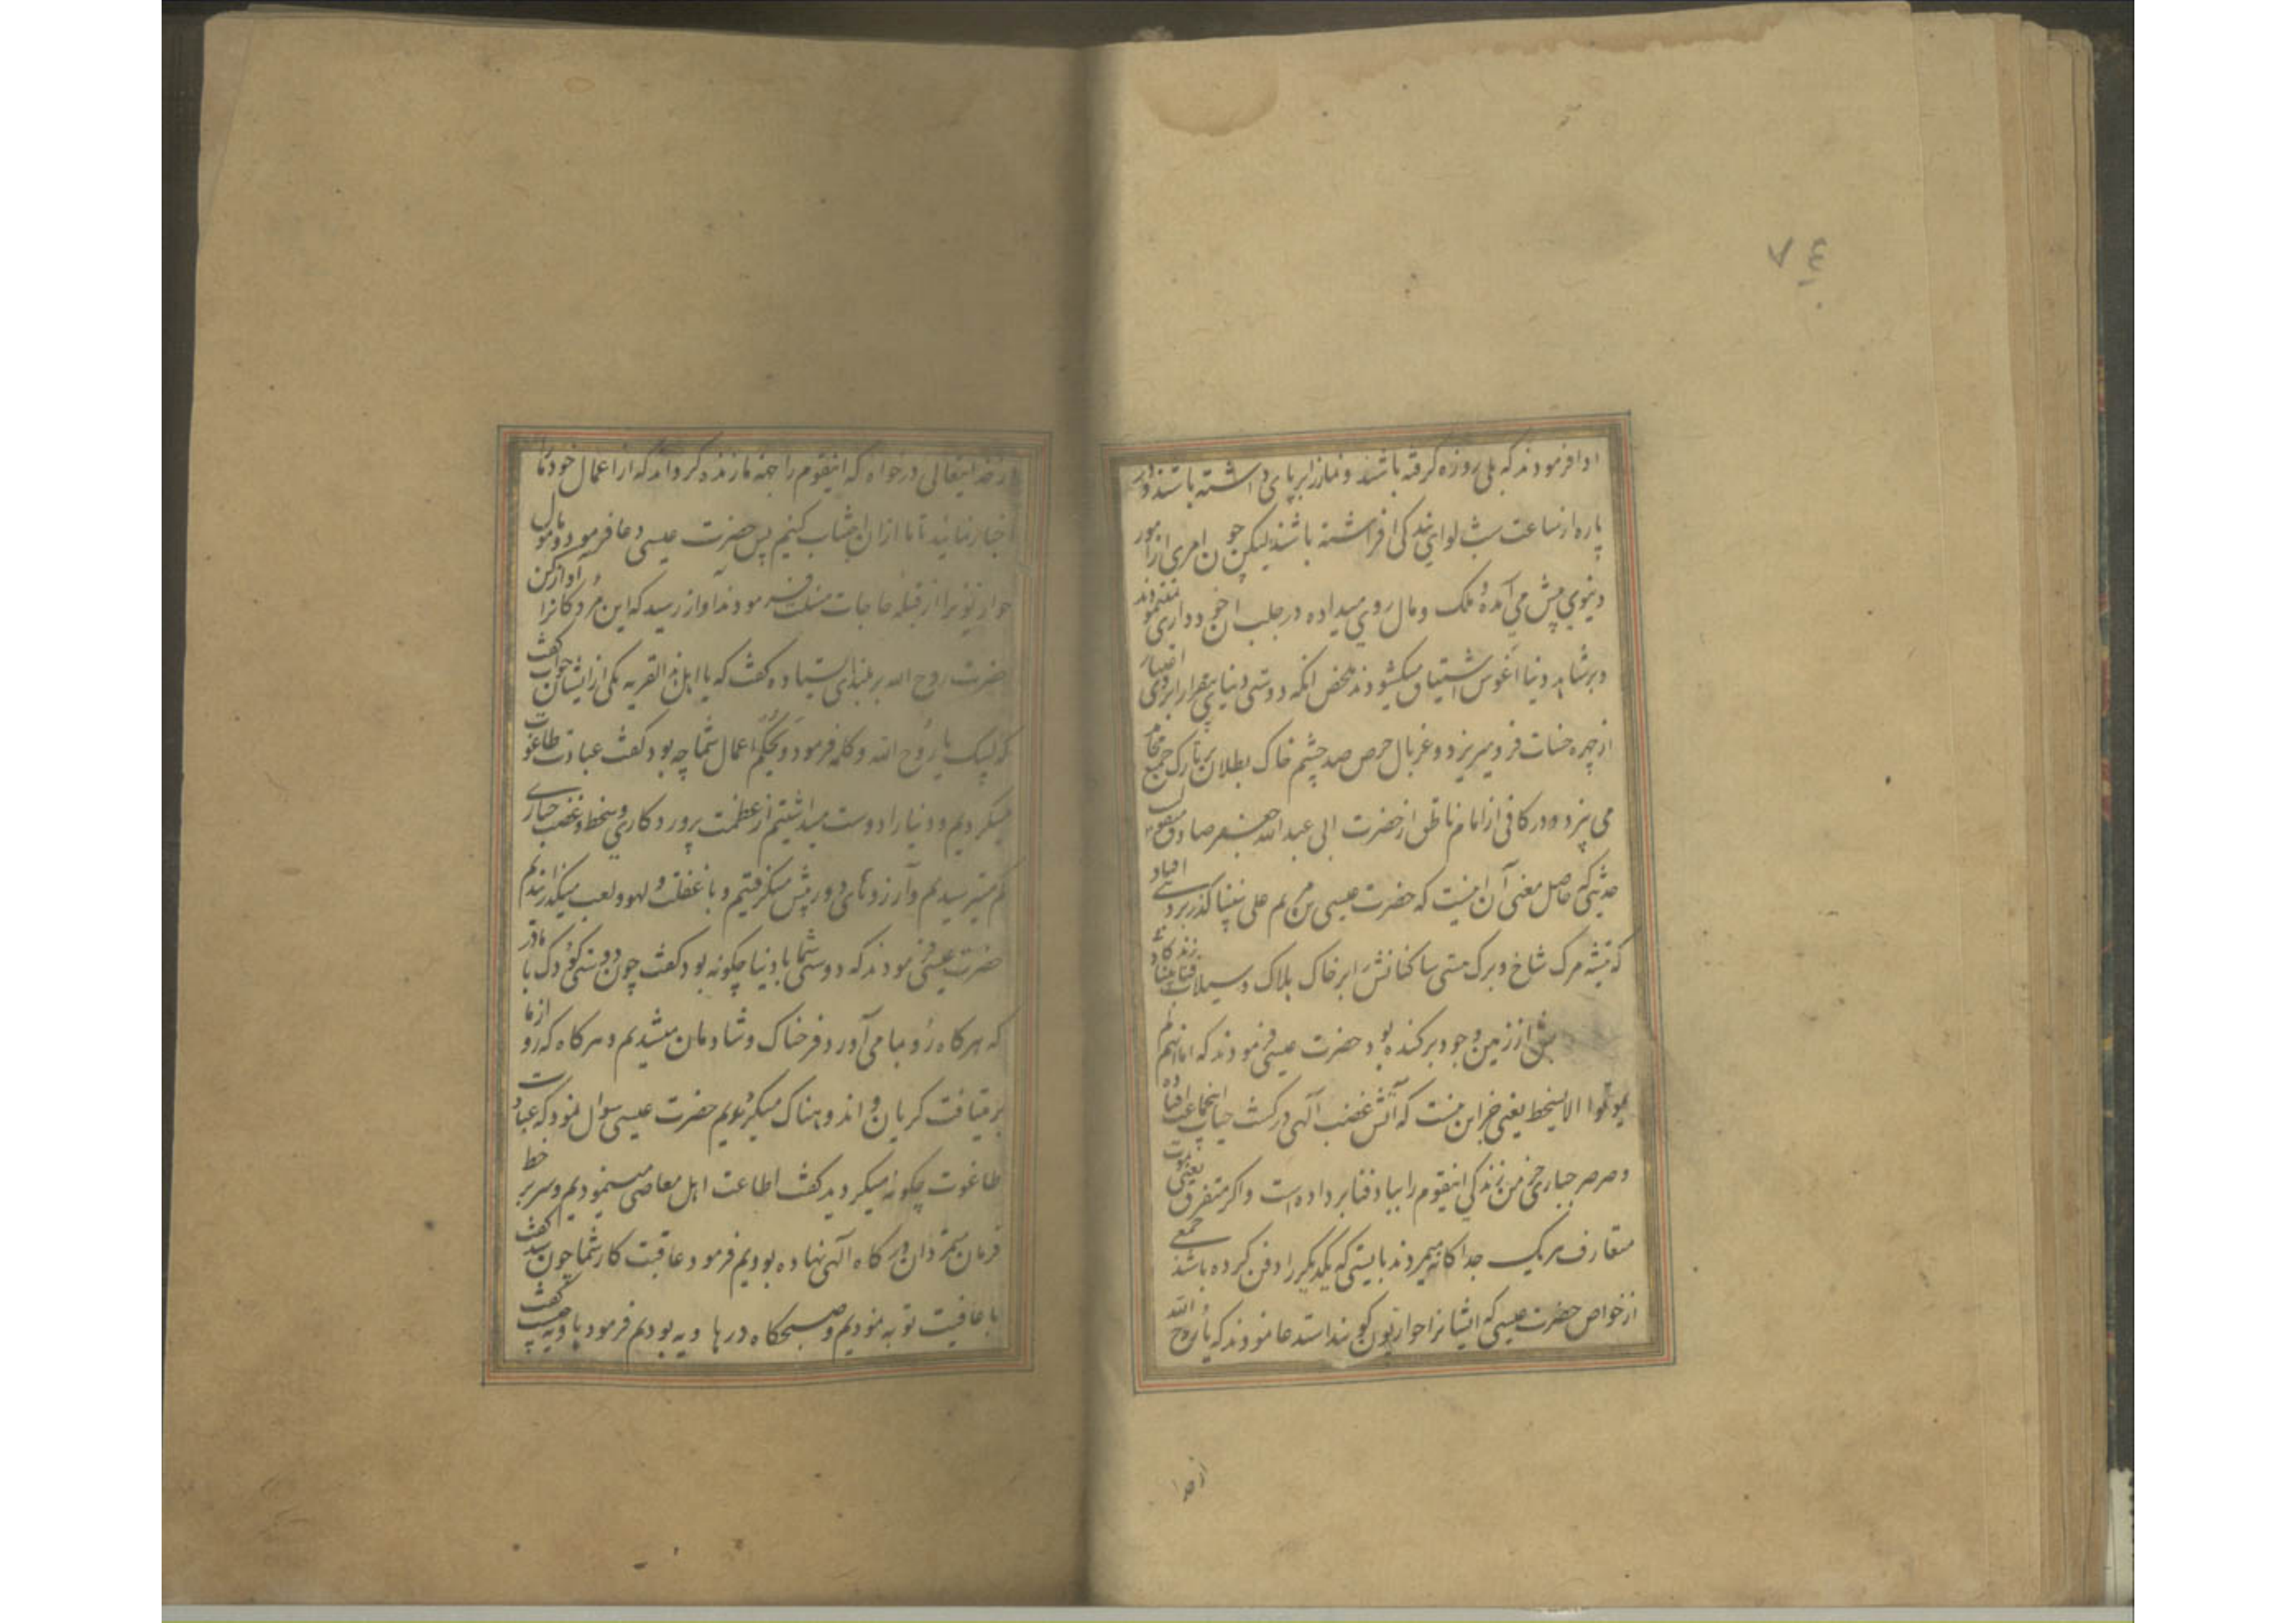 ٧٤
او افرمودند که بلی روزه گرفته باشند و نماز را برپای داشته باشند و در
پاره از ساعت شب لوای بندکی افراشته باشند لیکن چون امری از امور
دینوی پیش می آمده و ملک و مال روی میداده در جلب ان خود داری ننمودند
و بر شاهد دنیا آغوش اشتیاق میکشودند محض انکه دوستی دنیای بیقرار ابروی
از چهره حسنات فرو میریزد و غربال حرص صد چشم خاک بطلان بر تارک جمیع
می بیزد و در کافی از امام ناطق از حضرت ابی عبد الله جعفر صادق
حدیثی که حاصل معنی آن اینست که حضرت عیسی بن مریم علی نبینا گذر بر دهی افتاد
که تیشه مرک شاخ و برک هستی ساکنانش را بر خاک هلاک و سیلاب فنا
از زمین وجود برکنده بود حضرت عیسی فرمودند که اما انهم
لم یموتوا الا بسخط یعنی جز این نیست که آتش غضب آلهی در کشت حیات اینجماعت افتاده
و صرصر جباری خرمن زندکی اینقوم را بباد فنا برداده است و اکر متفرق یعنی بموت
متعارف هر یک جداکانه میمردند بایستی که یکدیکر را دفن کرده باشند جمعی
از خواص حضرت عیسی که ایشانرا حواریون کویند استدعا نمودند که یا روح الله
از خدا
از خدایتعالی درخواه که اینقوم را بجهة ما زنده کرداند که از اعمال خود ما را
اخبار نمایند تا ما از ان اجتناب کنیم پس حضرت عیسی دعا فرمود و مامول
حواریونرا از قبله حاجات مسئلت فرمودند آواز رسید که این مردکانرا آواز کن
حضرت روح الله بر بلندی ایستاده کفت که یا اهل هذه القریه یکی از ایشان جواب کفت
که لبیک یا روح الله و کلمه فرمود ویحکم اعمال شما چه بود کفت عبادت طاغوت
میکردیم و دنیا را دوست میداشتیم از عظمت پروردکاری و سخط و غضب جباری
کم میترسیدیم و آرزوهای دور پیش میکرفتیم و با غفلت و لهو و لعب میکذراندیم
حضرت عیسی فرمودند که دوستی شما با دنیا چکونه بود کفت چون دوستی کودک با مادر
که هرکاه رو بما می آورد فرحناک و شادمان میشدیم و هرکاه که رو از ما
برمیتافت کریان و اندوهناک میکردیدیم حضرت عیسی سوال نمود که عبادت
طاغوت چکونه میکردید کفت اطاعت اهل معاصی مینمودیم و سر بر خط
فرمان کاه آلهی نهاده بودیم فرمود عاقبت کار شما چون شد کفت
با عافیت توبه نمودیم و صبحکاه در هاویه بودیم فرمود هاویه چیست کفت